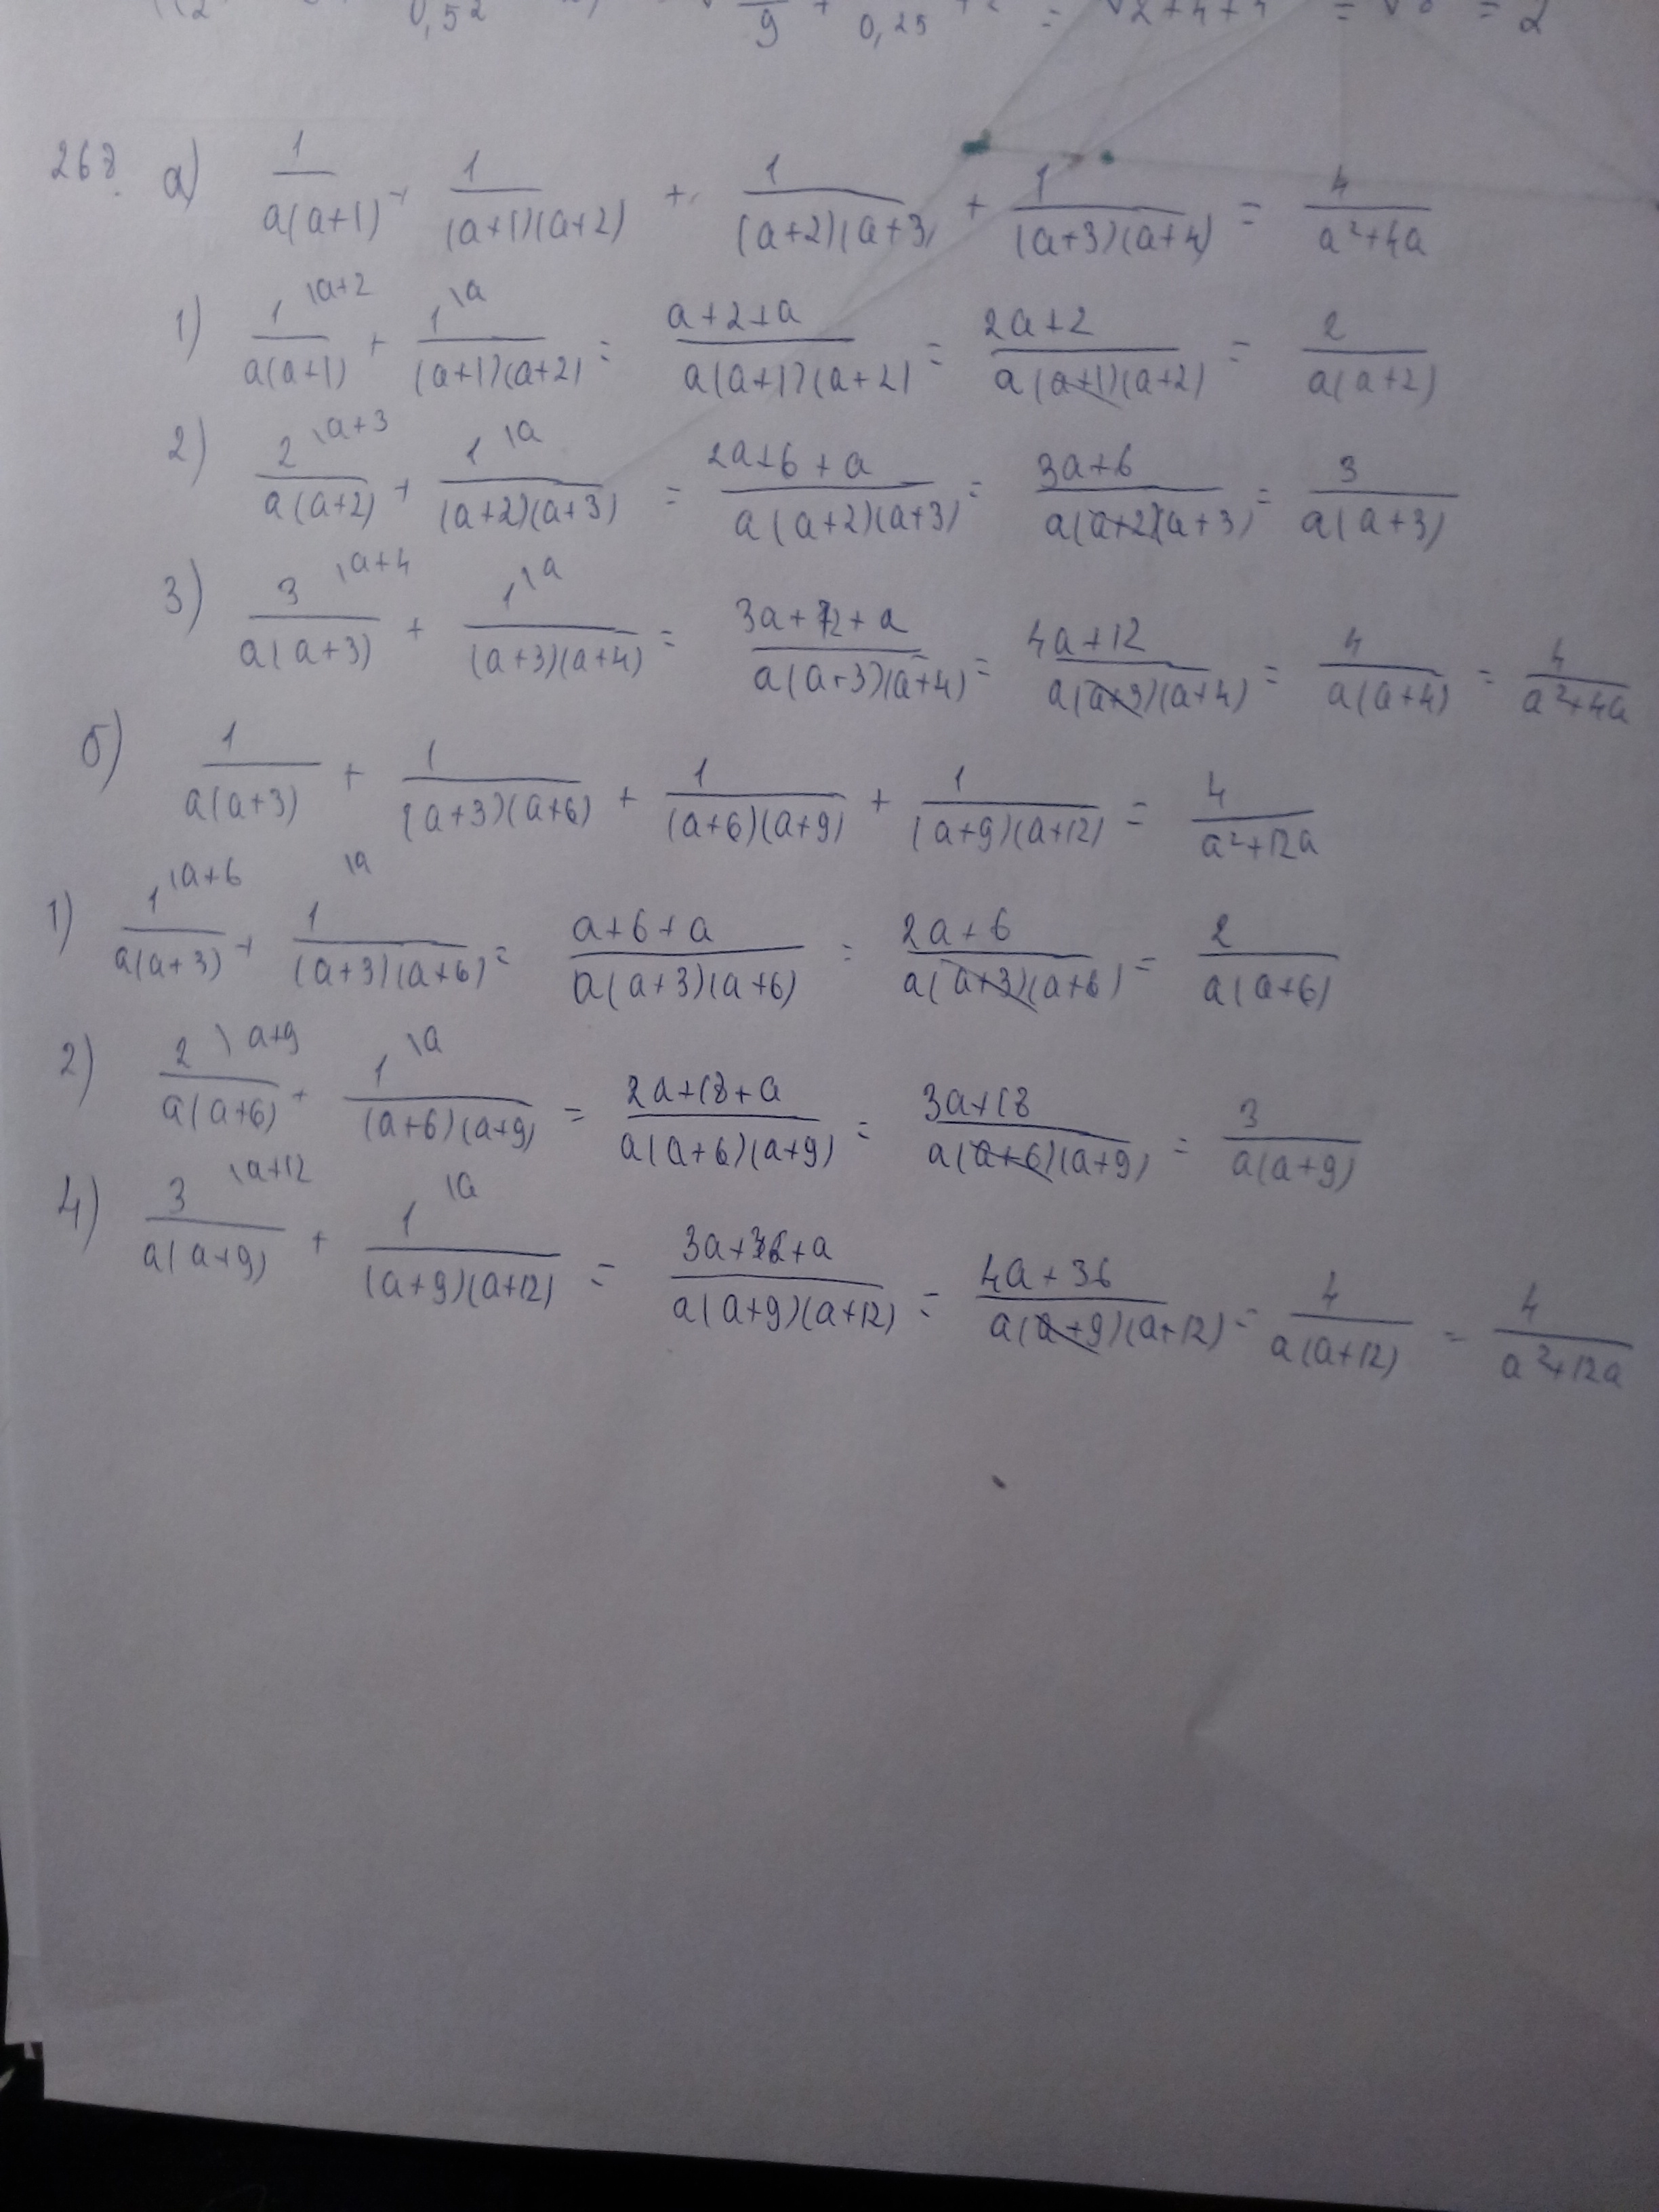 0,5² 9 + 0,25 = √2+4+ = √ = 2
268. а) 1/(a(a+1)) + 1/((a+1)(a+2)) + 1/((a+2)(a+3) + 1/((a+3)(a+4)) = 4/(a²+4a)
1) 1\a+2/(a(a+1)) + 1\a/((a+1)(a+2)) = (a+2+a)/(a(a+1)(a+2)) = (2a+2)/(a(a+1)(a+2)) = 2/(a(a+2))
2) 2\a+3/(a(a+2)) + 1\a/((a+2)(a+3)) = (2a+6+a)/(a(a+2)(a+3)) = (3a+6)/(a(a+2)(a+3)) = 3/(a(a+3))
3) 3\a+4/(a(a+3)) + 1\a/((a+3)(a+4)) = (3a+12+a)/(a(a+3)(a+4)) = (4a+12)/(a(a+3)(a+4)) = 4/(a(a+4)) = 4/(a²+4a)
б) 1/(a(a+3)) + 1/((a+3)(a+6)) + 1/((a+6)(a+9)) + 1/((a+9)(a+12)) = 4/(a²+12a)
1) 1\a+6/(a(a+3)) + 1\a/((a+3)(a+6)) = (a+6+a)/(a(a+3)(a+6)) = (2a+6)/(a(a+3)(a+6)) = 2/(a(a+6))
2) 2\a+9/(a(a+6)) + 1\a/((a+6)(a+9)) = (2a+18+a)/(a(a+6)(a+9)) = (3a+18)/(a(a+6)(a+9)) = 3/(a(a+9))
4) 3\a+12/(a(a+9)) + 1\a/((a+9)(a+12)) = (3a+36+a)/(a(a+9)(a+12)) = (4a+36)/(a(a+9)(a+12)) = 4/(a(a+12)) = 4/(a²+12a)